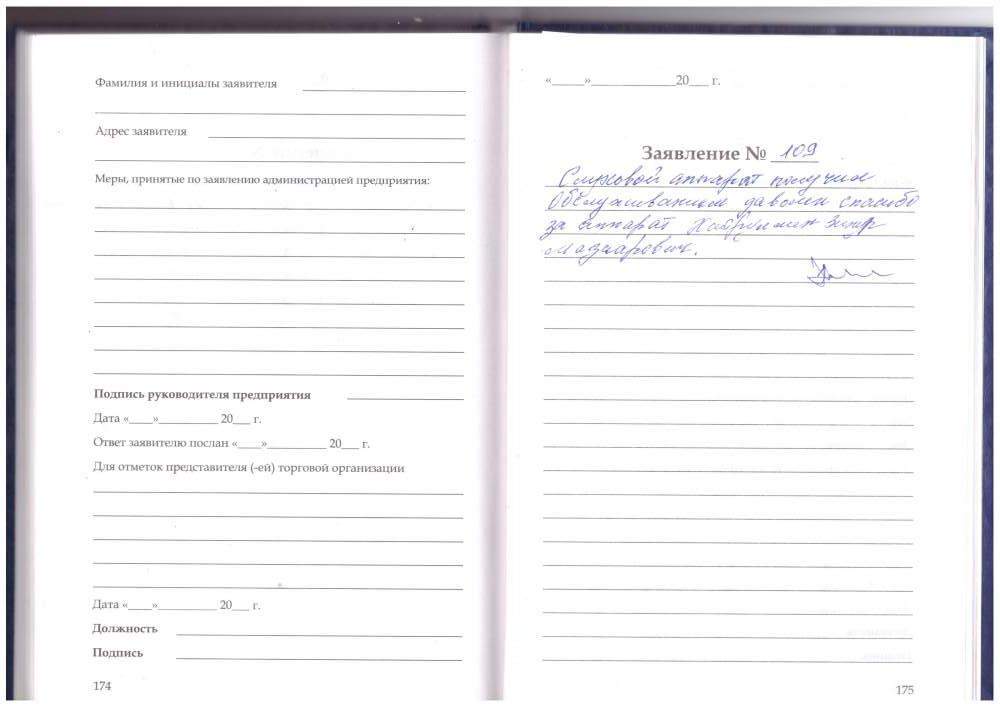 Фамилия и инициалы заявителя
Адрес заявителя
Меры, принятые по заявлению администрацией предприятия:
Подпись руководителя предприятия
Дата «____»__________ 20___ г.
Ответ заявителю послан «____»__________ 20___ г.
Для отметок представителя (-ей) торговой организации
Дата «____»__________ 20___ г.
Должность
Подпись
174
«_____»______________20___ г.
Заявление № 109
Слуховой аппарат получил
Обслуживанием даволен спасибо
за аппарат
175